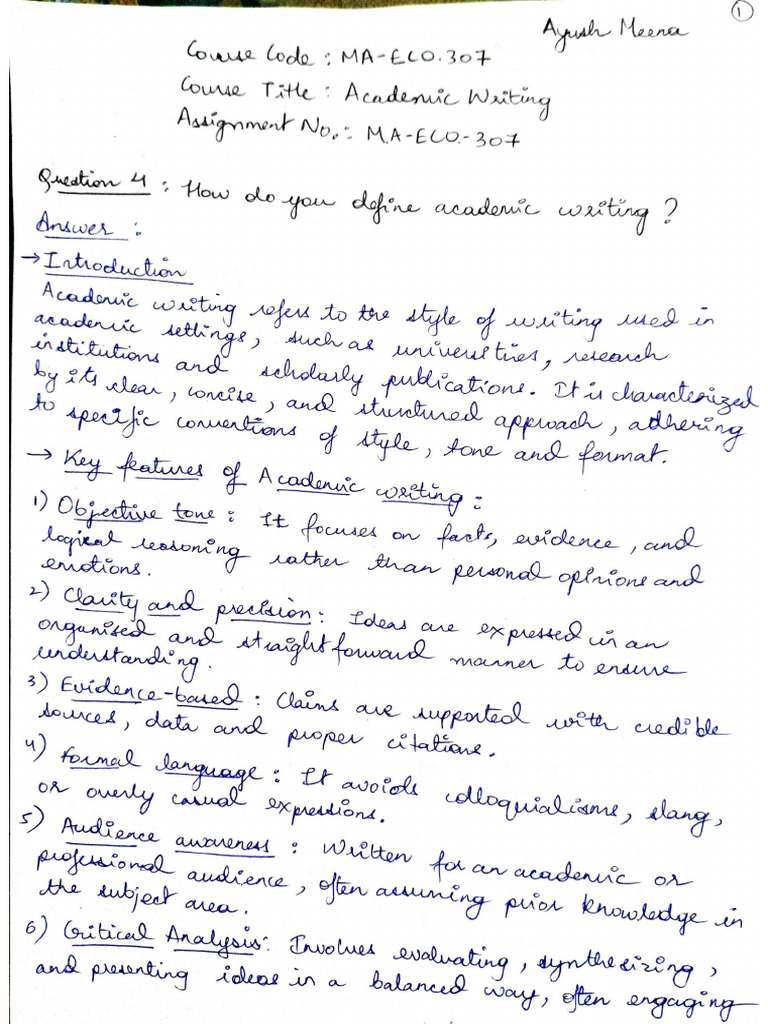 1
Ayush Meena
Course Code : MA-ECO.307
Course Title : Academic Writing
Assignment No.: M.A-ECO.-307
Question 4 : How do you define academic writing ?
Answer :
→ Introduction
Academic writing refers to the style of writing used in
academic settings, such as universities, research
institutions and scholarly publications. It is characterized
by its clear, concise, and structured approach, adhering
to specific conventions of style, tone and format.
→ Key features of Academic writing :
1) Objective tone : It focuses on facts, evidence, and
logical reasoning rather than personal opinions and
emotions.
2) Clarity and precision : Ideas are expressed in an
organised and straightforward manner to ensure
understanding.
3) Evidence-based : Claims are supported with credible
sources, data and proper citations.
4) Formal language : It avoids colloquialisms, slang,
or overly casual expressions.
5) Audience awareness : Written for an academic or
professional audience, often assuming prior knowledge in
the subject area.
6) Critical Analysis: Involves evaluating, synthesizing,
and presenting ideas in a balanced way, often engaging